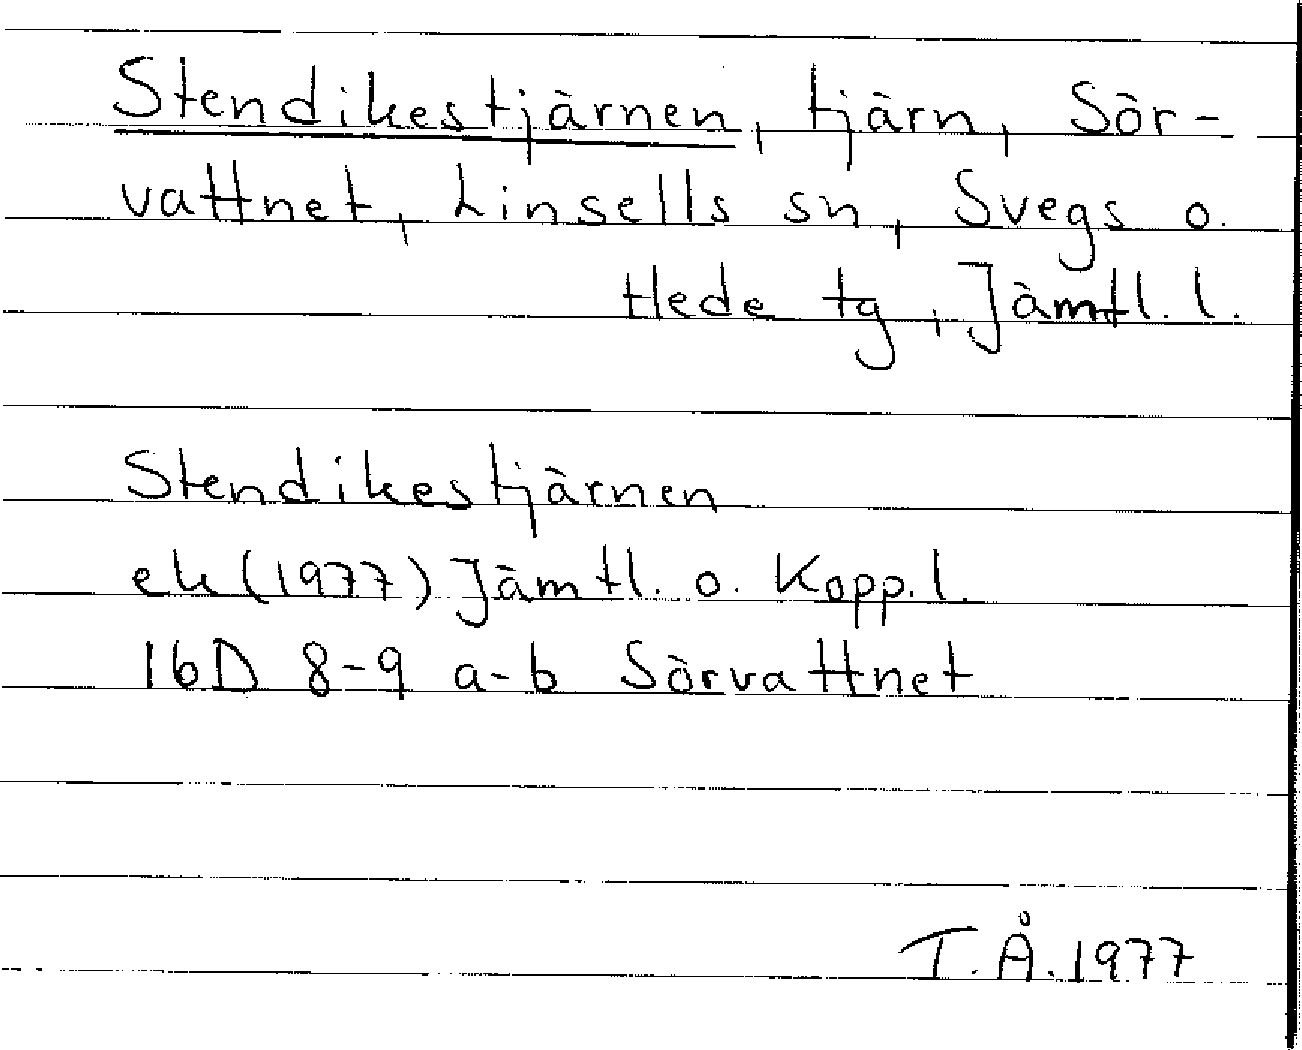 Stendikestjärnen, tjärn, Sör-
vattnet, Linsells sn, Svegs o.
Hede tg, Jämtl. l.
Stendikestjärnen
ek (1977) Jämtl. o. Kopp. l.
16D 8-9 a-b Sörvattnet
T.Å. 1977